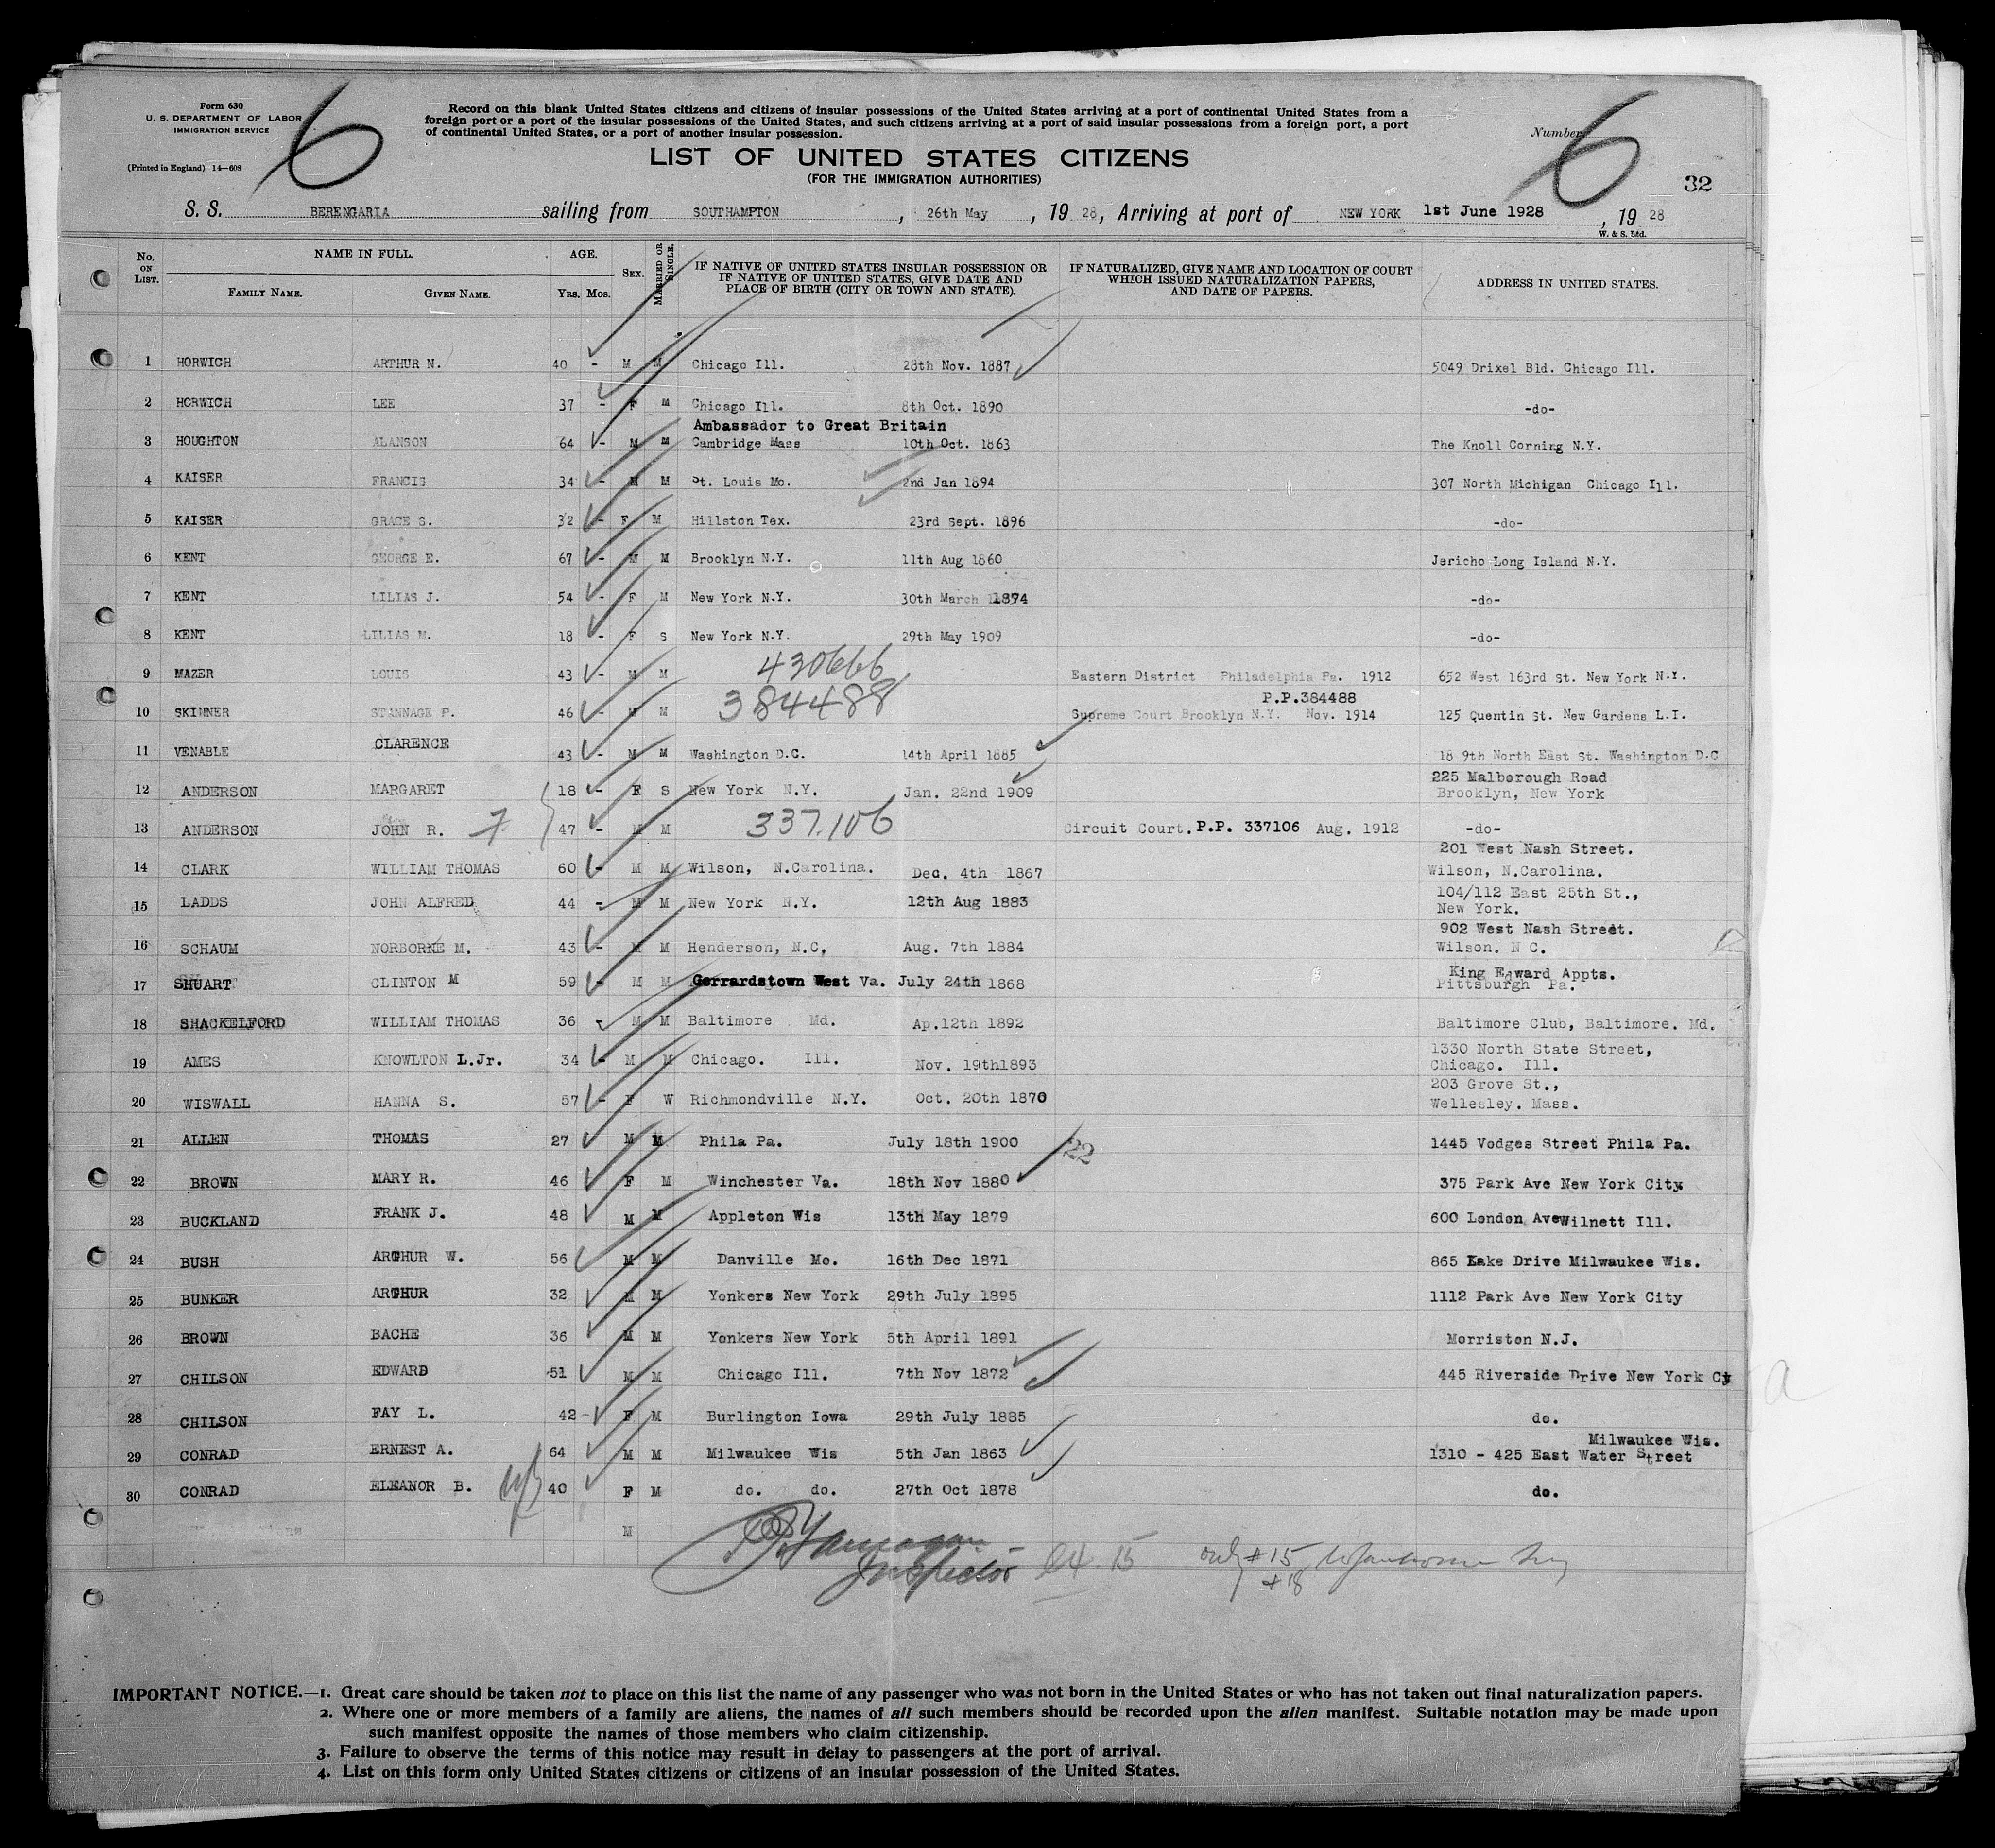 Form 630
U. S. DEPARTMENT OF LABOR
IMMIGRATION SERVICE
(Printed in England) 14—608
6
Record on this blank United States citizens and citizens of insular possessions of the United States arriving at a port of continental United States from a
foreign port or a port of the insular possessions of the United States, and such citizens arriving at a port of said insular possessions from a foreign port, a port
of continental United States, or a port of another insular possession.
Number
6
LIST OF UNITED STATES CITIZENS
(FOR THE IMMIGRATION AUTHORITIES)
32
S. S. BERENGARIA sailing from SOUTHAMPTON , 26th May , 19 28, Arriving at port of NEW YORK 1st June 1928 , 19 28
W. & S. Ltd.
No. ON LIST. NAME IN FULL. FAMILY NAME. GIVEN NAME. AGE. Yrs. Mos. SEX. MARRIED OR SINGLE. IF NATIVE OF UNITED STATES INSULAR POSSESSION OR IF NATIVE OF UNITED STATES, GIVE DATE AND PLACE OF BIRTH (CITY OR TOWN AND STATE). IF NATURALIZED, GIVE NAME AND LOCATION OF COURT WHICH ISSUED NATURALIZATION PAPERS, AND DATE OF PAPERS. ADDRESS IN UNITED STATES.
1 HORWICH ARTHUR N. 40 - M M Chicago Ill. 28th Nov. 1887 5049 Drixel Bld. Chicago Ill.
2 HORWICH LEE 37 - F M Chicago Ill. 8th Oct. 1890 -do-
Ambassador to Great Britain
3 HOUGHTON ALANSON 64 - M M Cambridge Mass 10th Oct. 1863 The Knoll Corning N.Y.
4 KAISER FRANCIS 34 - M M St. Louis Mo. 2nd Jan 1894 307 North Michigan Chicago Ill.
5 KAISER GRACE S. 32 - F M Hillston Tex. 23rd Sept. 1896 -do-
6 KENT GEORGE E. 67 - M M Brooklyn N.Y. 11th Aug 1860 Jericho Long Island N.Y.
7 KENT LILIAS J. 54 - F M New York N.Y. 30th March 1874 -do-
8 KENT LILIAS M. 18 - F S New York N.Y. 29th May 1909 -do-
9 MAZER LOUIS 43 - M M 430666 Eastern District Philadelphia Pa. 1912 652 West 163rd St. New York N.Y.
P.P.384488
10 SKINNER STANNAGE P. 46 - M M 384488 Supreme Court Brooklyn N.Y. Nov. 1914 125 Quentin St. New Gardens L.I.
11 VENABLE CLARENCE 43 - M M Washington D.C. 14th April 1885 18 9th North East St. Washington D.C
225 Malborough Road
12 ANDERSON MARGARET 18 - F S New York N.Y. Jan. 22nd 1909 Brooklyn, New York
13 ANDERSON JOHN R. 7 47 - M M 337.106 Circuit Court. P.P. 337106 Aug. 1912 -do-
201 West Nash Street.
14 CLARK WILLIAM THOMAS 60 - M M Wilson, N.Carolina. Dec. 4th 1867 Wilson, N.Carolina.
104/112 East 25th St.,
15 LADDS JOHN ALFRED 44 - M M New York N.Y. 12th Aug 1883 New York.
902 West Nash Street.
16 SCHAUM NORBORNE M. 43 - M M Henderson, N.C, Aug. 7th 1884 Wilson. N C.
King Edward Appts.
17 SHUART CLINTON M 59 - M M Gerrardstown West Va. July 24th 1868 Pittsburgh Pa.
18 SHACKELFORD WILLIAM THOMAS 36 - M M Baltimore Md. Ap.12th 1892 Baltimore Club, Baltimore. Md.
1330 North State Street,
19 AMES KNOWLTON L.Jr. 34 - M M Chicago. Ill. Nov. 19th1893 Chicago. Ill.
203 Grove St.,
20 WISWALL HANNA S. 57 - F W Richmondville N.Y. Oct. 20th 1870 Wellesley. Mass.
21 ALLEN THOMAS 27 M M Phila Pa. July 18th 1900 22 1445 Vodges Street Phila Pa.
22 BROWN MARY R. 46 F M Winchester Va. 18th Nov 1880 375 Park Ave New York City
23 BUCKLAND FRANK J. 48 M M Appleton Wis 13th May 1879 600 London AveWilnett Ill.
24 BUSH ARTHUR W. 56 M M Danville Mo. 16th Dec 1871 865 Lake Drive Milwaukee Wis.
25 BUNKER ARTHUR 32 M M Yonkers New York 29th July 1895 1112 Park Ave New York City
26 BROWN BACHE 36 M M Yonkers New York 5th April 1891 Morriston N.J.
27 CHILSON EDWARD 51 M M Chicago Ill. 7th Nov 1872 445 Riverside Drive New York Cy
28 CHILSON FAY L. 42 - F M Burlington Iowa 29th July 1885 do.
Milwaukee Wis.
29 CONRAD ERNEST A. 64 M M Milwaukee Wis 5th Jan 1863 1310 - 425 East Water Street
30 CONRAD ELEANOR B. 40 F M do. do. 27th Oct 1878 do.
M
Inspector 15 only #15
+ 18
IMPORTANT NOTICE.—1. Great care should be taken not to place on this list the name of any passenger who was not born in the United States or who has not taken out final naturalization papers.
2. Where one or more members of a family are aliens, the names of all such members should be recorded upon the alien manifest. Suitable notation may be made upon
such manifest opposite the names of those members who claim citizenship.
3. Failure to observe the terms of this notice may result in delay to passengers at the port of arrival.
4. List on this form only United States citizens or citizens of an insular possession of the United States.